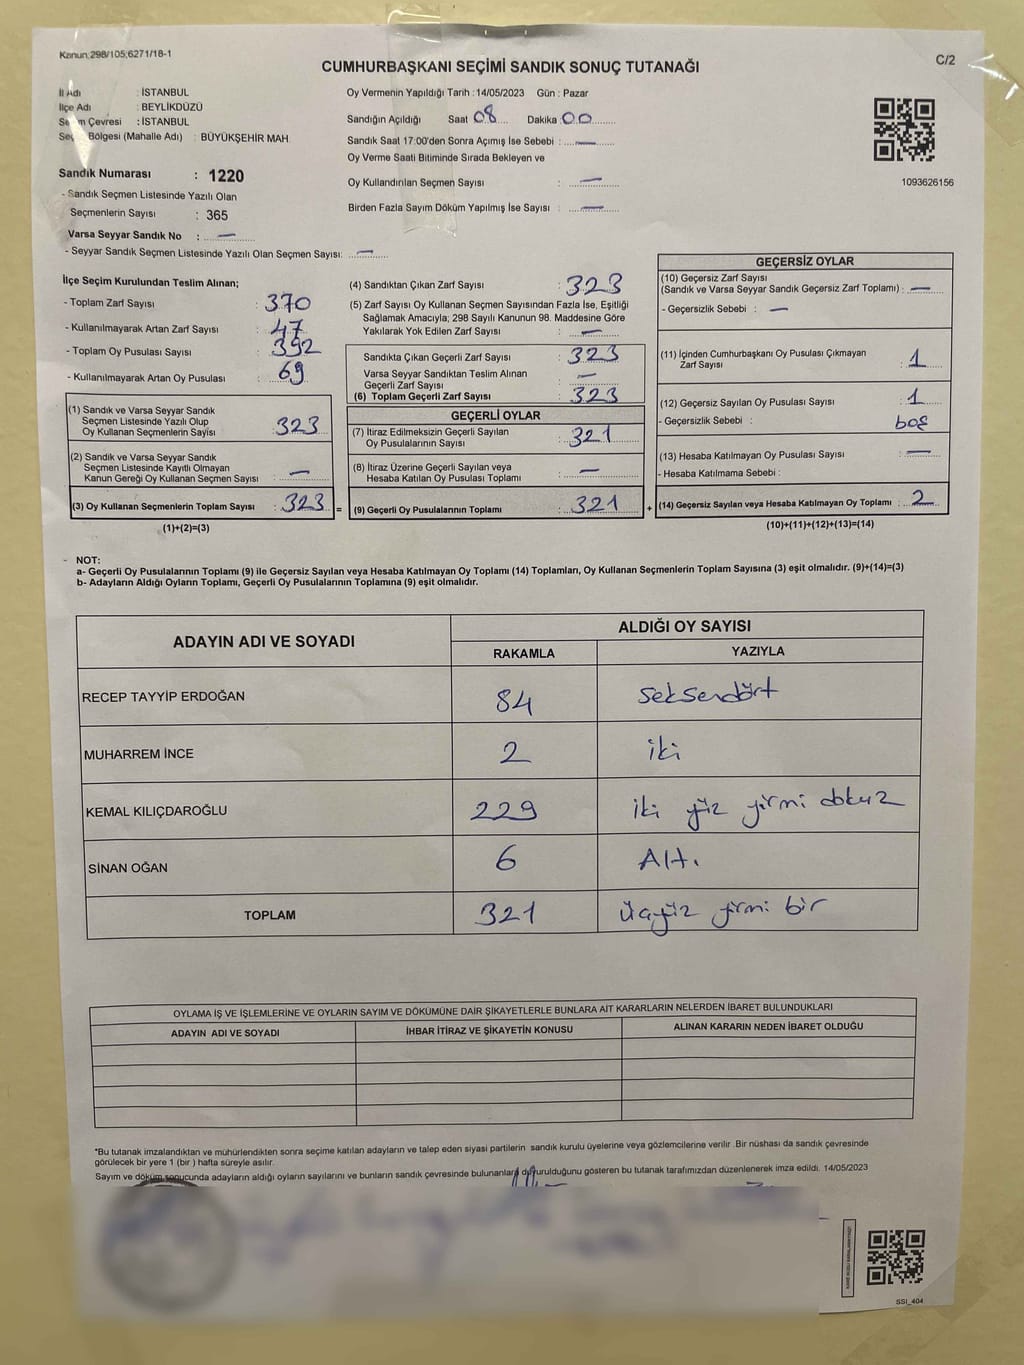 Kanun:298/105;6271/18-1
C/2
CUMHURBAŞKANI SEÇİMİ SANDIK SONUÇ TUTANAĞI
İl Adı : İSTANBUL
İlçe Adı : BEYLİKDÜZÜ
Seçim Çevresi : İSTANBUL
Seçim Bölgesi (Mahalle Adı) : BÜYÜKŞEHİR MAH.
Sandık Numarası : 1220
- Sandık Seçmen Listesinde Yazılı Olan
Seçmenlerin Sayısı : 365
Varsa Seyyar Sandık No : —
- Seyyar Sandık Seçmen Listesinde Yazılı Olan Seçmen Sayısı: —
Oy Vermenin Yapıldığı Tarih : 14/05/2023 Gün : Pazar
Sandığın Açıldığı Saat 08 Dakika 00
Sandık Saat 17:00'den Sonra Açımış İse Sebebi : —
Oy Verme Saati Bitiminde Sırada Bekleyen ve
Oy Kullandırılan Seçmen Sayısı : —
Birden Fazla Sayım Döküm Yapılmış İse Sayısı : —
1093626156
İlçe Seçim Kurulundan Teslim Alınan;
- Toplam Zarf Sayısı : 370
- Kullanılmayarak Artan Zarf Sayısı : 47
- Toplam Oy Pusulası Sayısı : 392
- Kullanılmayarak Artan Oy Pusulası : 69
(1) Sandık ve Varsa Seyyar Sandık
Seçmen Listesinde Yazılı Olup
Oy Kullanan Seçmenlerin Sayısı : 323
(2) Sandık ve Varsa Seyyar Sandık
Seçmen Listesinde Kayıtlı Olmayan
Kanun Gereği Oy Kullanan Seçmen Sayısı : —
(3) Oy Kullanan Seçmenlerin Toplam Sayısı : 323 =
(1)+(2)=(3)
(4) Sandıktan Çıkan Zarf Sayısı : 323
(5) Zarf Sayısı Oy Kullanan Seçmen Sayısından Fazla İse, Eşitliği
Sağlamak Amacıyla; 298 Sayılı Kanunun 98. Maddesine Göre
Yakılarak Yok Edilen Zarf Sayısı : —
Sandıkta Çıkan Geçerli Zarf Sayısı : 323
Varsa Seyyar Sandıktan Teslim Alınan
Geçerli Zarf Sayısı : —
(6) Toplam Geçerli Zarf Sayısı : 323
GEÇERLİ OYLAR
(7) İtiraz Edilmeksizin Geçerli Sayılan
Oy Pusulalarının Sayısı : 321
(8) İtiraz Üzerine Geçerli Sayılan veya
Hesaba Katılan Oy Pusulası Toplamı : —
(9) Geçerli Oy Pusulalarının Toplamı : 321 +
GEÇERSİZ OYLAR
(10) Geçersiz Zarf Sayısı
(Sandık ve Varsa Seyyar Sandık Geçersiz Zarf Toplamı) : —
- Geçersizlik Sebebi : —
(11) İçinden Cumhurbaşkanı Oy Pusulası Çıkmayan
Zarf Sayısı : 1
(12) Geçersiz Sayılan Oy Pusulası Sayısı : 1
- Geçersizlik Sebebi : boş
(13) Hesaba Katılmayan Oy Pusulası Sayısı : —
- Hesaba Katılmama Sebebi :
(14) Geçersiz Sayılan veya Hesaba Katılmayan Oy Toplamı : 2
(10)+(11)+(12)+(13)=(14)
- NOT:
a- Geçerli Oy Pusulalarının Toplamı (9) ile Geçersiz Sayılan veya Hesaba Katılmayan Oy Toplamı (14) Toplamları, Oy Kullanan Seçmenlerin Toplam Sayısına (3) eşit olmalıdır. (9)+(14)=(3)
b- Adayların Aldığı Oyların Toplamı, Geçerli Oy Pusulalarının Toplamına (9) eşit olmalıdır.
ADAYIN ADI VE SOYADI ALDIĞI OY SAYISI
RAKAMLA YAZIYLA
RECEP TAYYİP ERDOĞAN 84 seksendört
MUHARREM İNCE 2 iki
KEMAL KILIÇDAROĞLU 229 iki yüz yirmi dokuz
SİNAN OĞAN 6 Altı
TOPLAM 321 üçyüz yirmi bir
OYLAMA İŞ VE İŞLEMLERİNE VE OYLARIN SAYIM VE DÖKÜMÜNE DAİR ŞİKAYETLERLE BUNLARA AİT KARARLARIN NELERDEN İBARET BULUNDUKLARI
ADAYIN ADI VE SOYADI İHBAR İTİRAZ VE ŞİKAYETİN KONUSU ALINAN KARARIN NEDEN İBARET OLDUĞU
"Bu tutanak imzalandıktan ve mühürlendikten sonra seçime katılan adayların ve talep eden siyasi partilerin sandık kurulu üyelerine veya gözlemcilerine verilir .Bir nüshası da sandık çevresinde
görülecek bir yere 1 (bir ) hafta süreyle asılır.
Sayım ve döküm sonucunda adayların aldığı oyların sayılarını ve bunların sandık çevresinde bulunanlara duyurulduğunu gösteren bu tutanak tarafımızdan düzenlenerek imza edildi. 14/05/2023
SSI_404